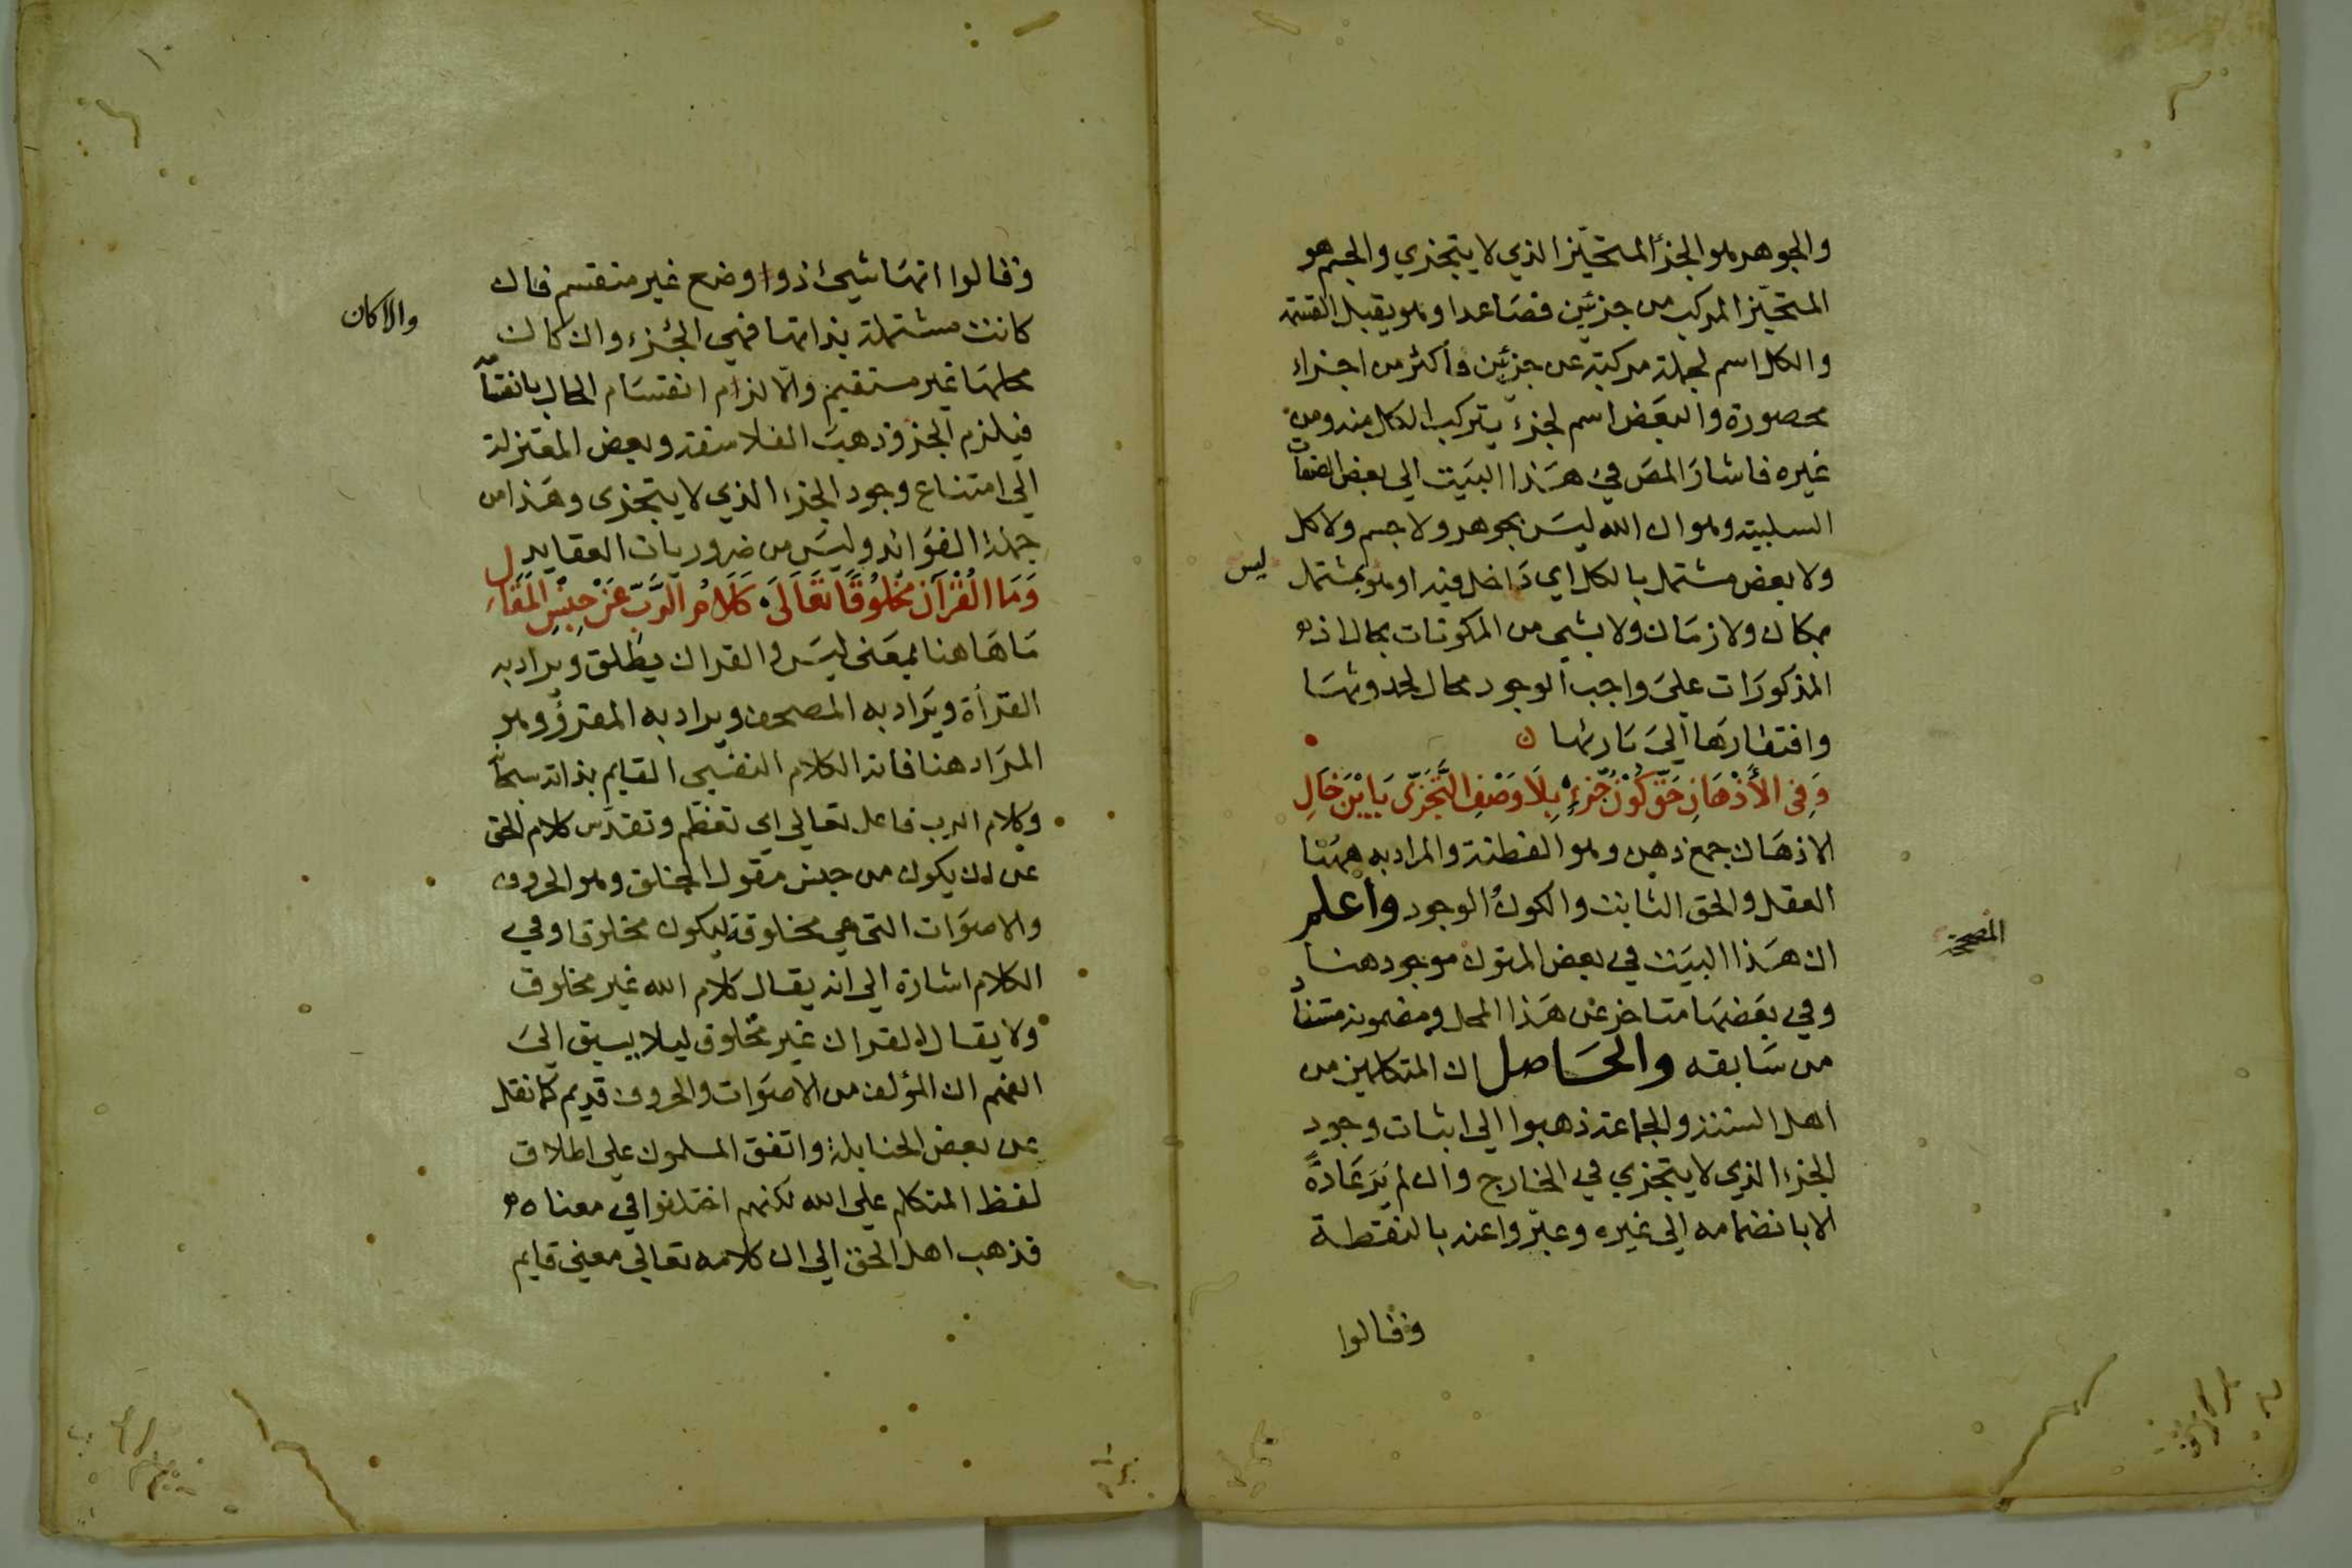 والجوهر هو الجزأ المتحيّز الذي لا يتجزي والجسم هو
المتحيّز المركب من جزئين فصَاعدا وهو يقبل القسمة
والكل اسم لجملة مركبة عن جزئين وأكثر من اجزاء
محصورة والبعَض اسم لجزء يتركب الكل منه ومن
غيره فاشارَ المصَ في هَذا البيَت الي بعض الصفات
السلبية وهو ان الله ليسَ بجوهر ولا جسم ولا كل
ولا بعض مشتمل بالكل اي دَاخل فيه او هو بمشتمل
ليس
بمكان ولا زمَان ولا بشي من المكونات بحال اذ
المذكورَات عليَ واجب الوجود محال لحدوثهَا
وافتقارهَا اليَ بَارئها
وَفِي الأَذْهَانِ حَقٌّ كَوْنُ جُزْءٍ بِلَا وَصْفِ التَّجَزِّى يَا ابْنَ خَالِ
الاذهَان جمع ذهن وهو الفطنة والمراد به ههُنا
العقل والحق الثابت والكونُ الوجود وأعلم
ان هَذا البيَت في بعض المتون موجود هنا
المصححة
وفي بعَضهَا متاخر عن هَذا المحل ومضمونه مستفاد
من سَابقه والحَاصل ان المتكلمين من
اهل السنة والجماعة ذهبوا الي اثبات وجود
الجزء الذي لا يتجزي في الخارج وان لم يَرَ عَادةً
الا بانضمامه الي غيره وعبّروا عنه بالنقطة
وقالوا
وقالوا انهَا شيئ ذوا وضع غير منقسم فان
كانت مستقلة بذاتها فهي الجُزء وان كان
والا كان
محلهَا غير مستقيم والّا لزام انقسَام الحال بانقسا
فيلزم الجزء وذهبَ الفلاسفة وبعض المعتزلة
الي امتناع وجود الجزء الذي لا يتجزى وهَذا من
جملة الفوَائد وليسَ من ضروريات العقايد
وَمَا الْقُرْآنُ مَخْلُوقًا تَعَالَىَ كَلَامُ الرَّبِّ عَنْ جِنْسِ الْمَقَالِ
مَا هَاهنا بمعَنى ليسَ والقران يطلق ويراد به
القرأة ويَراد به المصحف ويراد به المقروُّ وهو
المرَاد هنا فانه الكلام النفسي القايم بذاته سبحانه
وكلام الرب فاعل تعالي اي تعَظّم وتقدّس كلام الحق
عن ان يكون من جنس مقول الخلق وهو الحروف
والاصوَات التي هي مخلوقة ليكون مخلوقا وفي
الكلام اشارة الي انه يقال كلام الله غير مخلوق
ولا يقال القران غير مخلوق ليلا يسبق اليَ
الفهم ان المؤلف من الاصوَات والحروف قديم كما نقل
عن بعض الحنابلة واتفق المسلمون علي اطلاق
لفظ المتكلم علي الله لكنهم اختلفوا في معناه
فذهب اهل الحق الي ان كلامه تعالي معني قايم